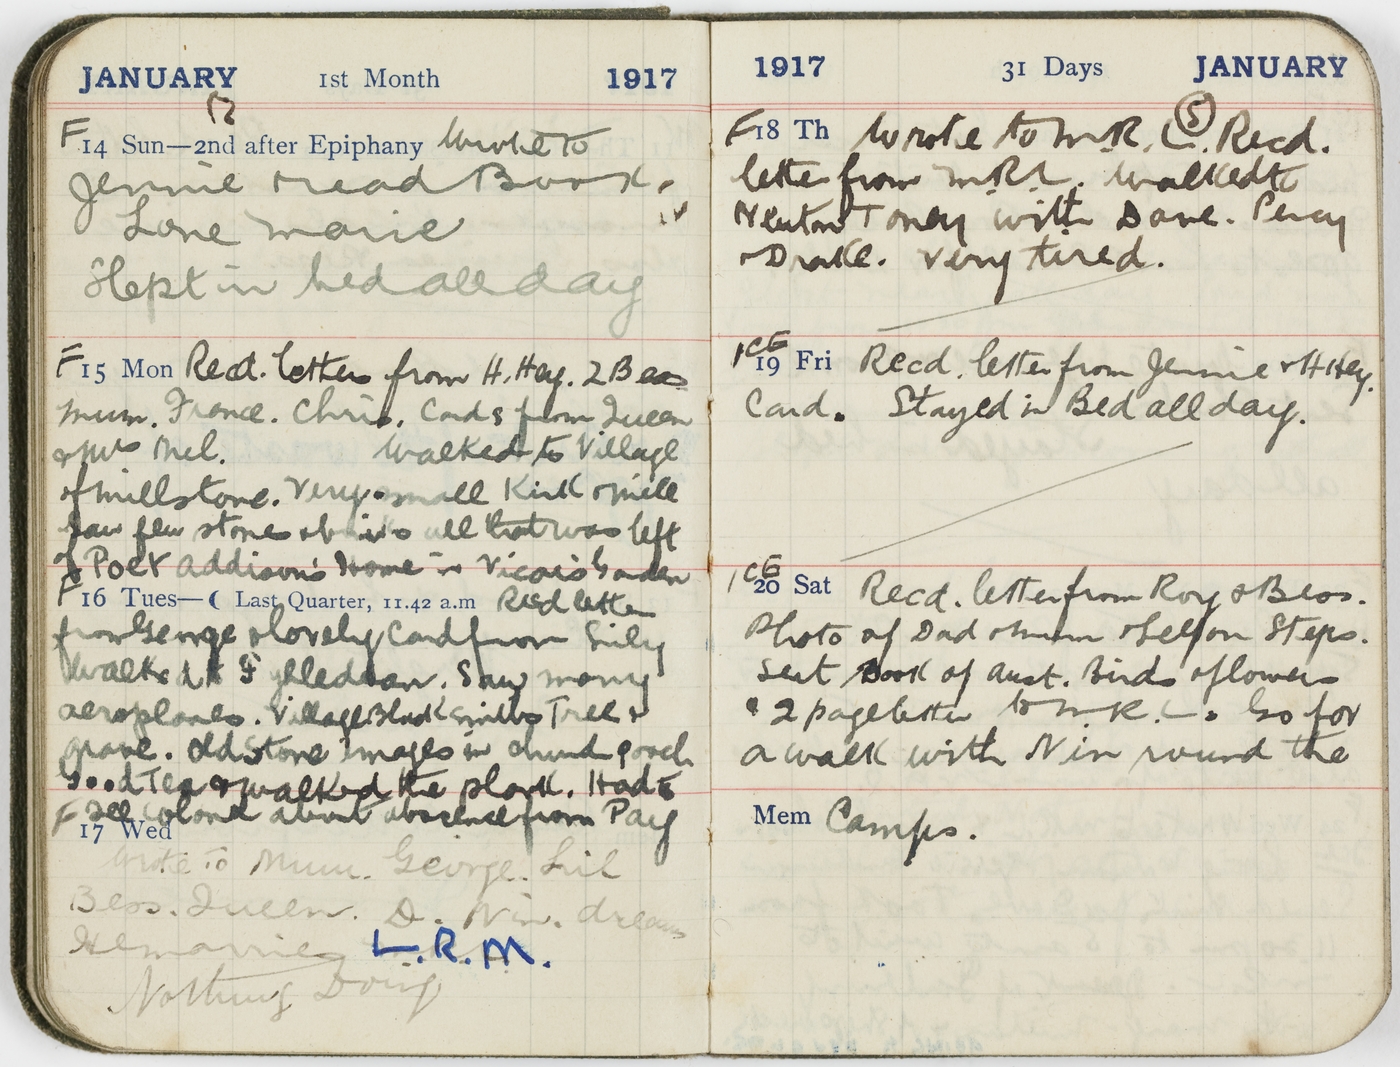 JANUARY 1st Month 1917
12
F 14 Sun—2nd after Epiphany Wrote to
Jennie & read Book.
Lone Marie
Slept in bed all day
F 15 Mon Recd. letters from H. Hey. 2 Bess
Mum. France. Chris. Cards from Queen
& Mrs Mel. Walked to Village
of Millstone. Very small Kirk & mill
Saw few stones & bricks all that was left
of Poet Addison's Home in Vicar's Garden
F 16 Tues—☾ Last Quarter, 11.42 a.m Recd letter
from George & lovely Card from Lily
Walked to Fyhledean. Saw many
aeroplanes. Village Blacksmiths Tree &
grave. Old Stone images in church porch
Good Tea & walked the plank. Had to
F see Colonel about absence from Pay
17 Wed
Wrote to Mum. George. Lil
Bess. Queen. D. Nin. dream
He marries L.R.M.
Nothing Doing
1917 31 Days JANUARY
F 18 Th Wrote to M.R.L. (5) Recd.
letter from M.R.L. Walked to
Newton Toney with Dave. Percy
& Drake. Very tired.
ICE 19 Fri Recd. letter from Jennie & H Hey.
Card. Stayed in Bed all day.
ICE 20 Sat Recd. letter from Roy & Bess.
Photo of Dad & Mum & Self on Steps.
Sent Book of Aust. Birds & flowers
& 2 page letter to M.R.L. Go for
a walk with Nin round the
Mem Camps.